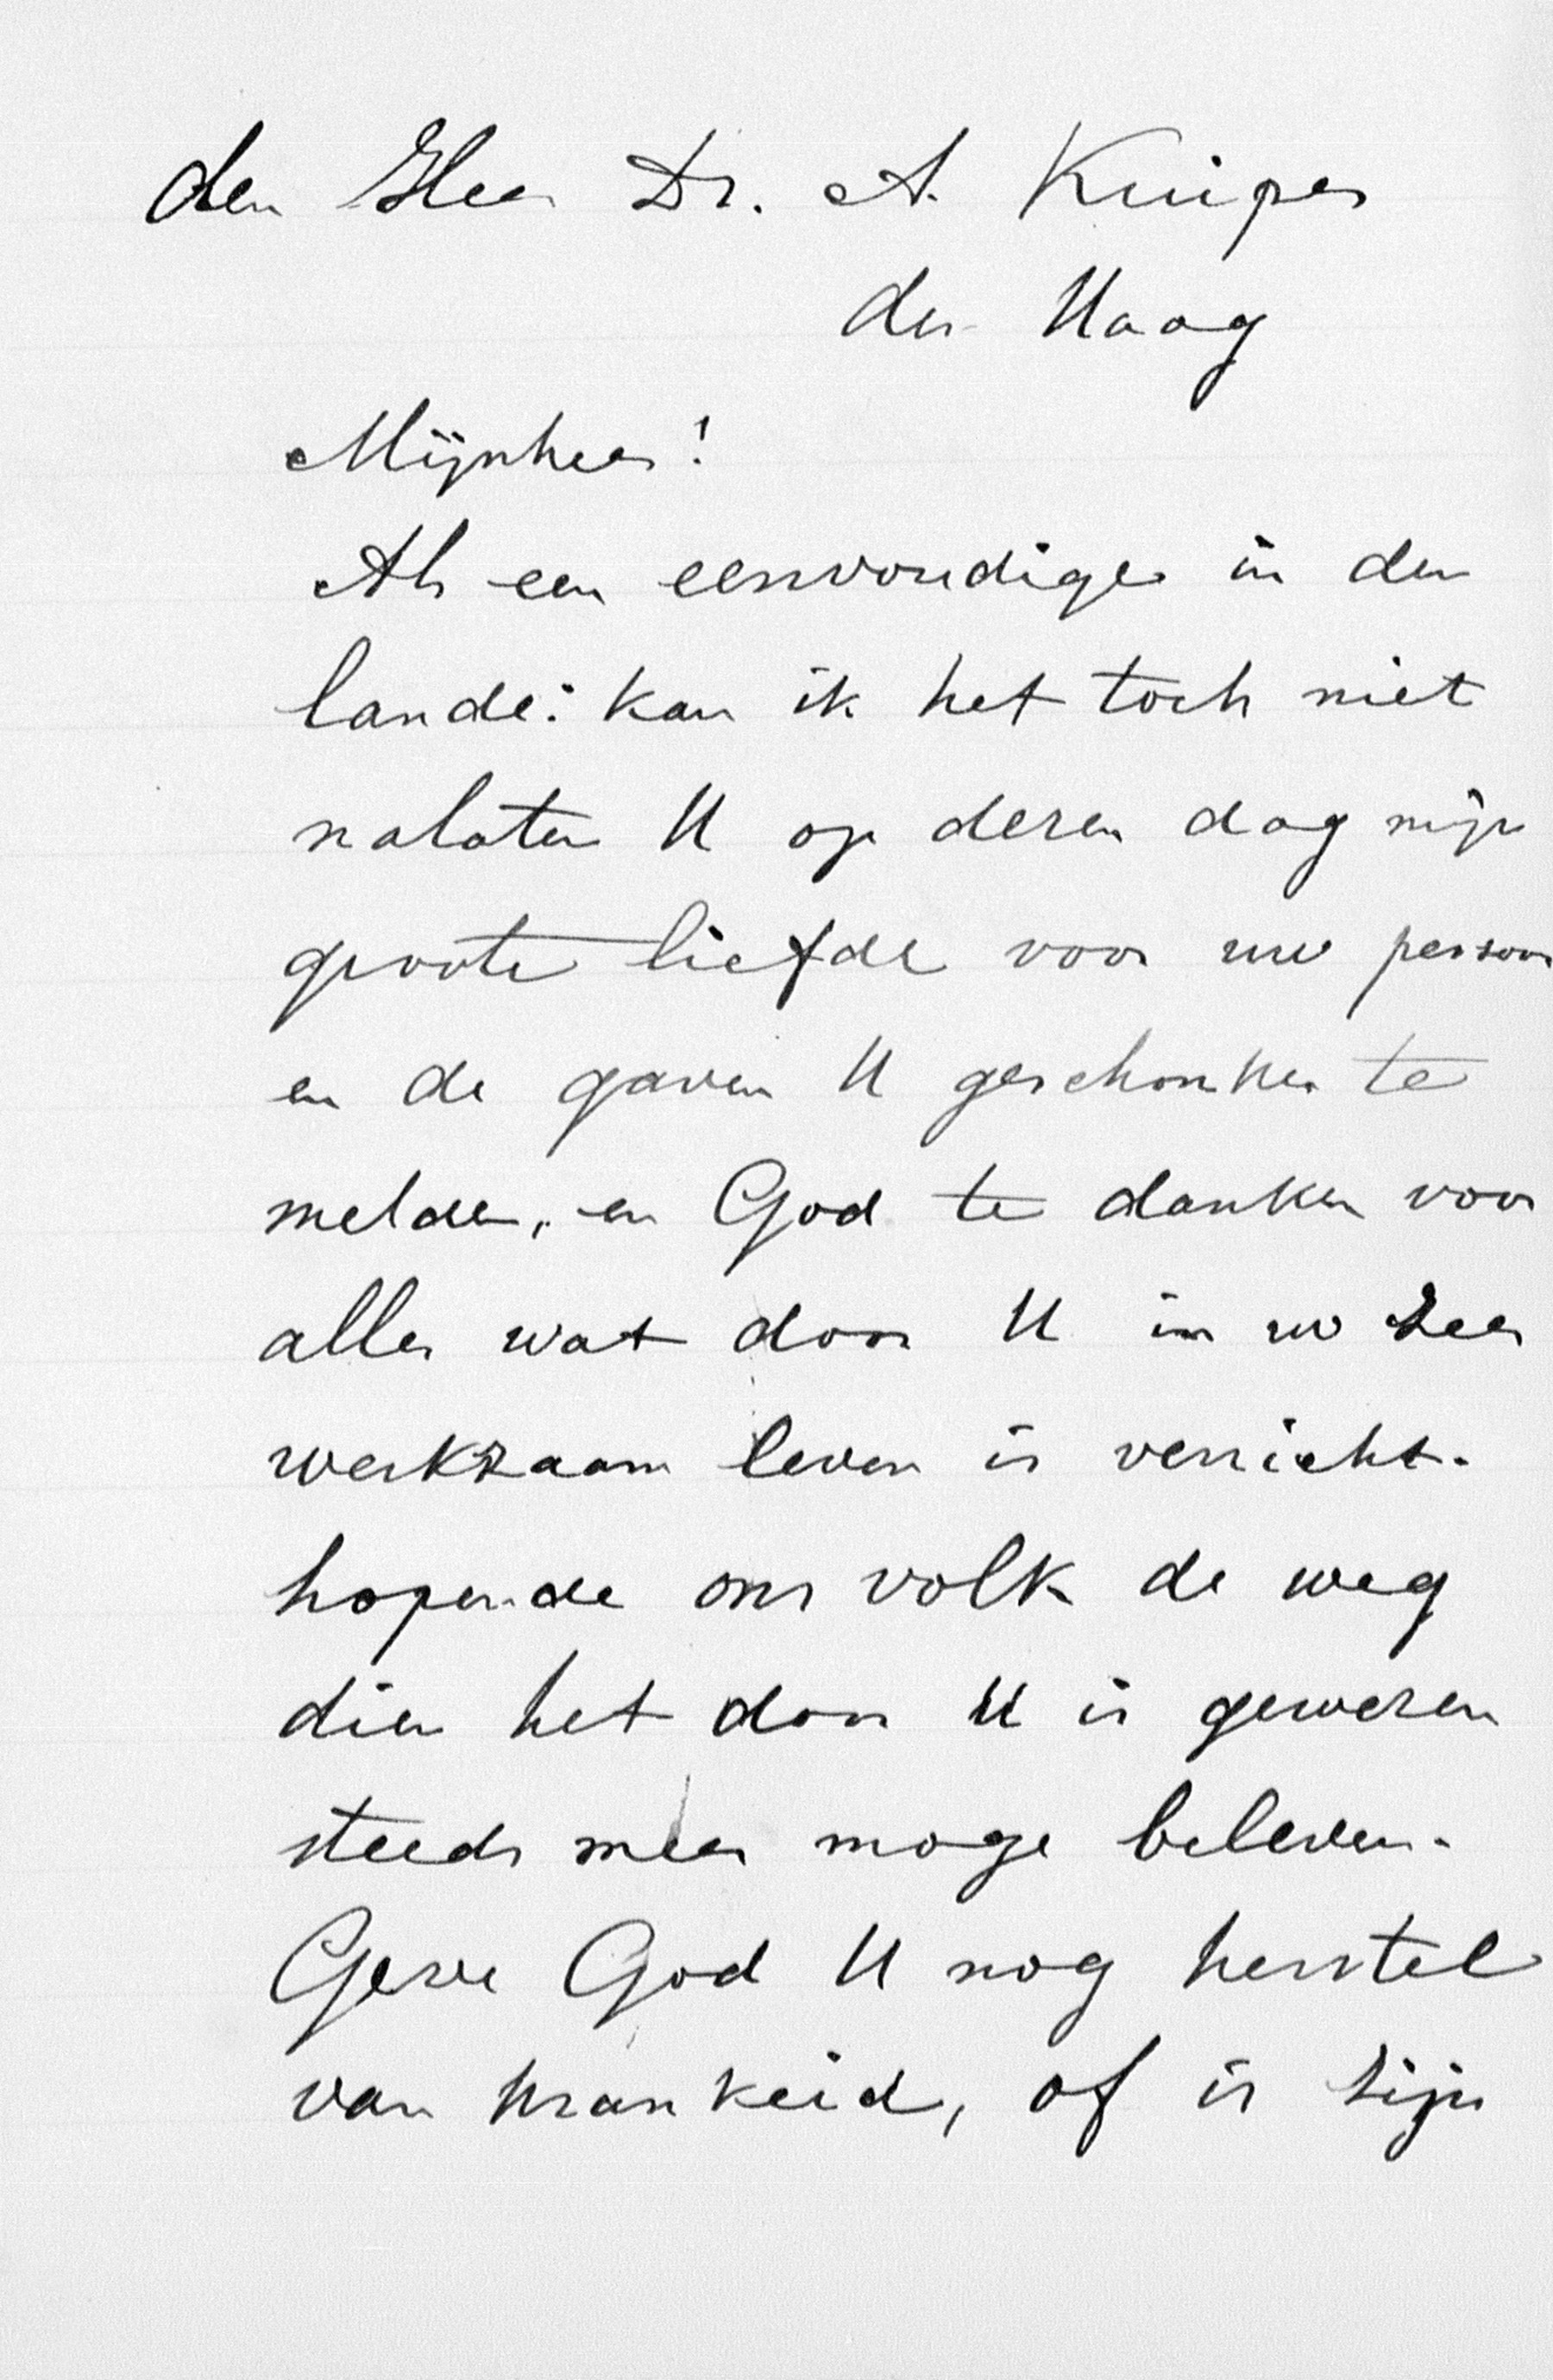 den Heer Dr. A. Kuiper
den Haag
Mijnheer!
Als een eenvoudige in den
lande: kan ik het toch niet
nalaten U op dezen dag mijn
groote liefde voor uw persoon
en de gaven U geschonken te
melden, en God te danken voor
alles wat door U in uw zeer
werkzaam leven is verricht.
hopende ons volk de weg
dien het door U is gewezen
steeds meer moge beleven.
Geve God U nog herstel
van krankeid, of is zijn